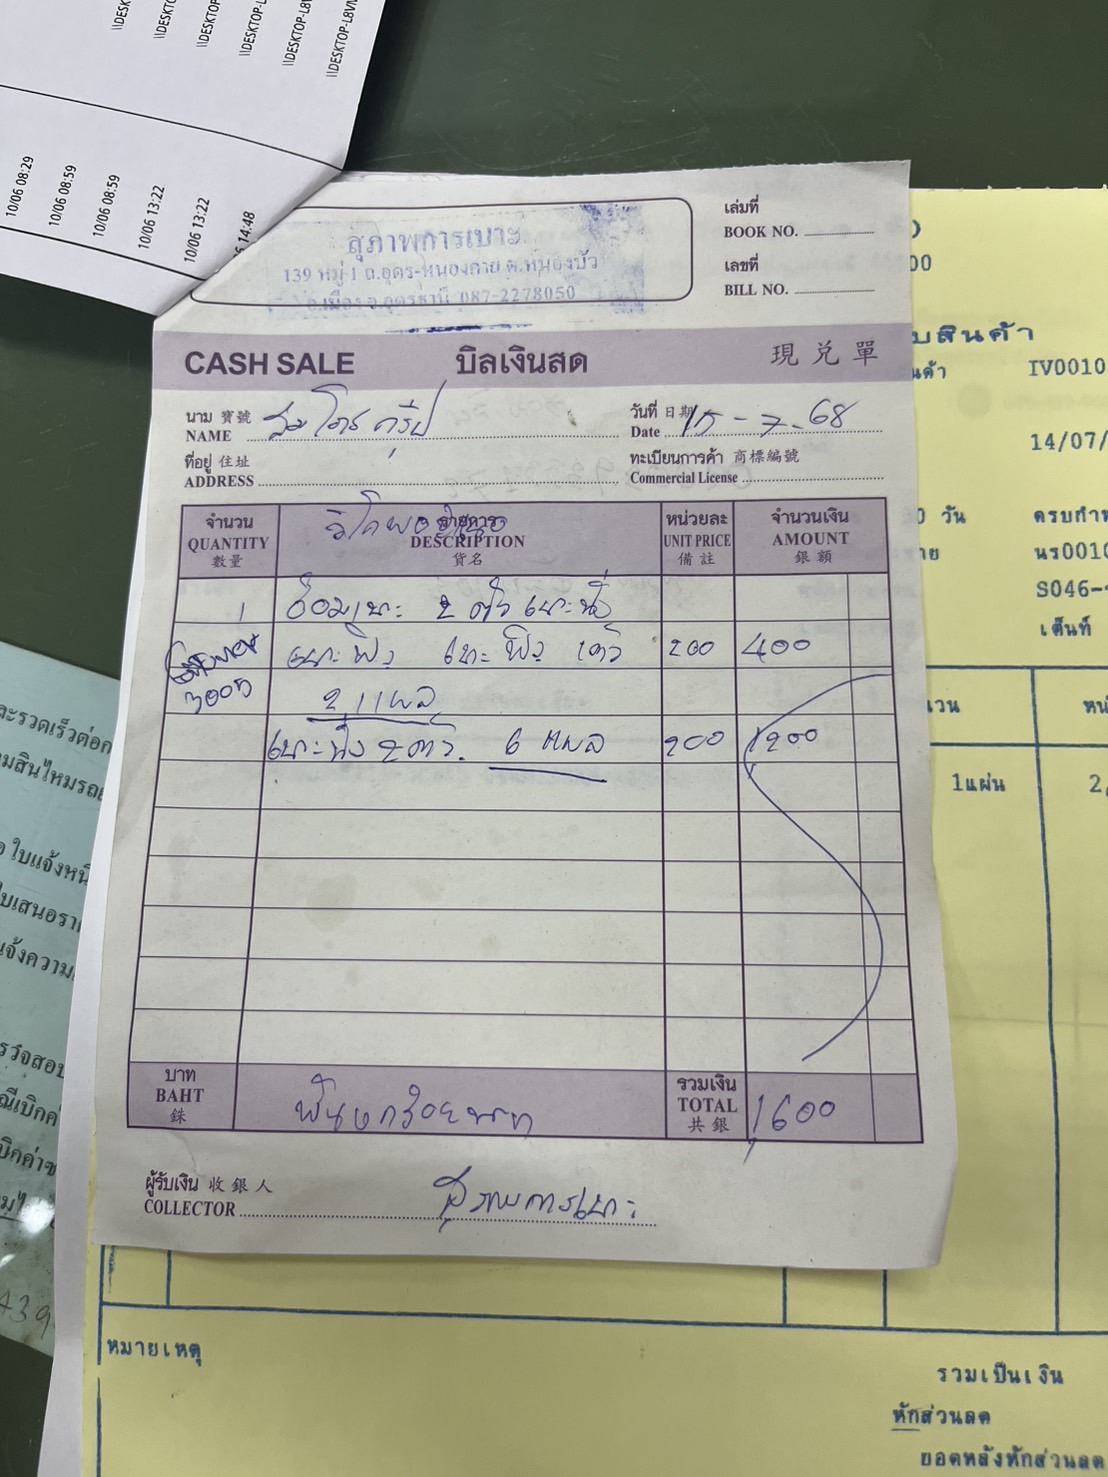 \\DESKTOP-L8VN
10/06 08:29
10/06 08:59
10/06 08:59
10/06 13:22
10/06 13:22
14:48
สุภาพการเบาะ
139 หมู่ 1 ถ.อุดร-หนองคาย ต.หนองบัว
อ.เมือง จ.อุดรธานี 087-2278050
เล่มที่
BOOK NO.
เลขที่
BILL NO.
CASH SALE บิลเงินสด 現兌單
นาม 寶號
NAME
วันที่ 日期
Date 15-7-68
ที่อยู่ 住址
ADDRESS
ทะเบียนการค้า 商標編號
Commercial License
จำนวน
QUANTITY
數量
รายการ
DESCRIPTION
貨名
หน่วยละ
UNIT PRICE
備註
จำนวนเงิน
AMOUNT
銀額
1 ซ่อมเบาะ 2 ตัว
เบาะพิง เบาะพิง 200 400
2 แผล
เบาะนั่ง 2 ตัว. 6 แผล 200 1200
บาท
BAHT
銖
พันหกร้อยบาท
รวมเงิน
TOTAL
共銀
1,600
ผู้รับเงิน 收銀人
COLLECTOR สุภาพการเบาะ
บสินค้า
IV0010
14/07/
วัน
นร0010
S046-
เต็นท์
1แผ่น
2,
หมายเหตุ
รวมเป็นเงิน
หักส่วนลด
ยอดหลังหักส่วนลด